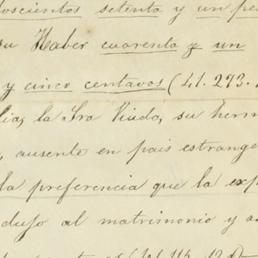 doscientos setenta y un pe
su Haber cuarenta y un
y cinco centavos (41.293.
lia, la Sra Viuda, su herm
, ausente en pais estrange
la preferencia que la exp
dujo al matrimonio y a